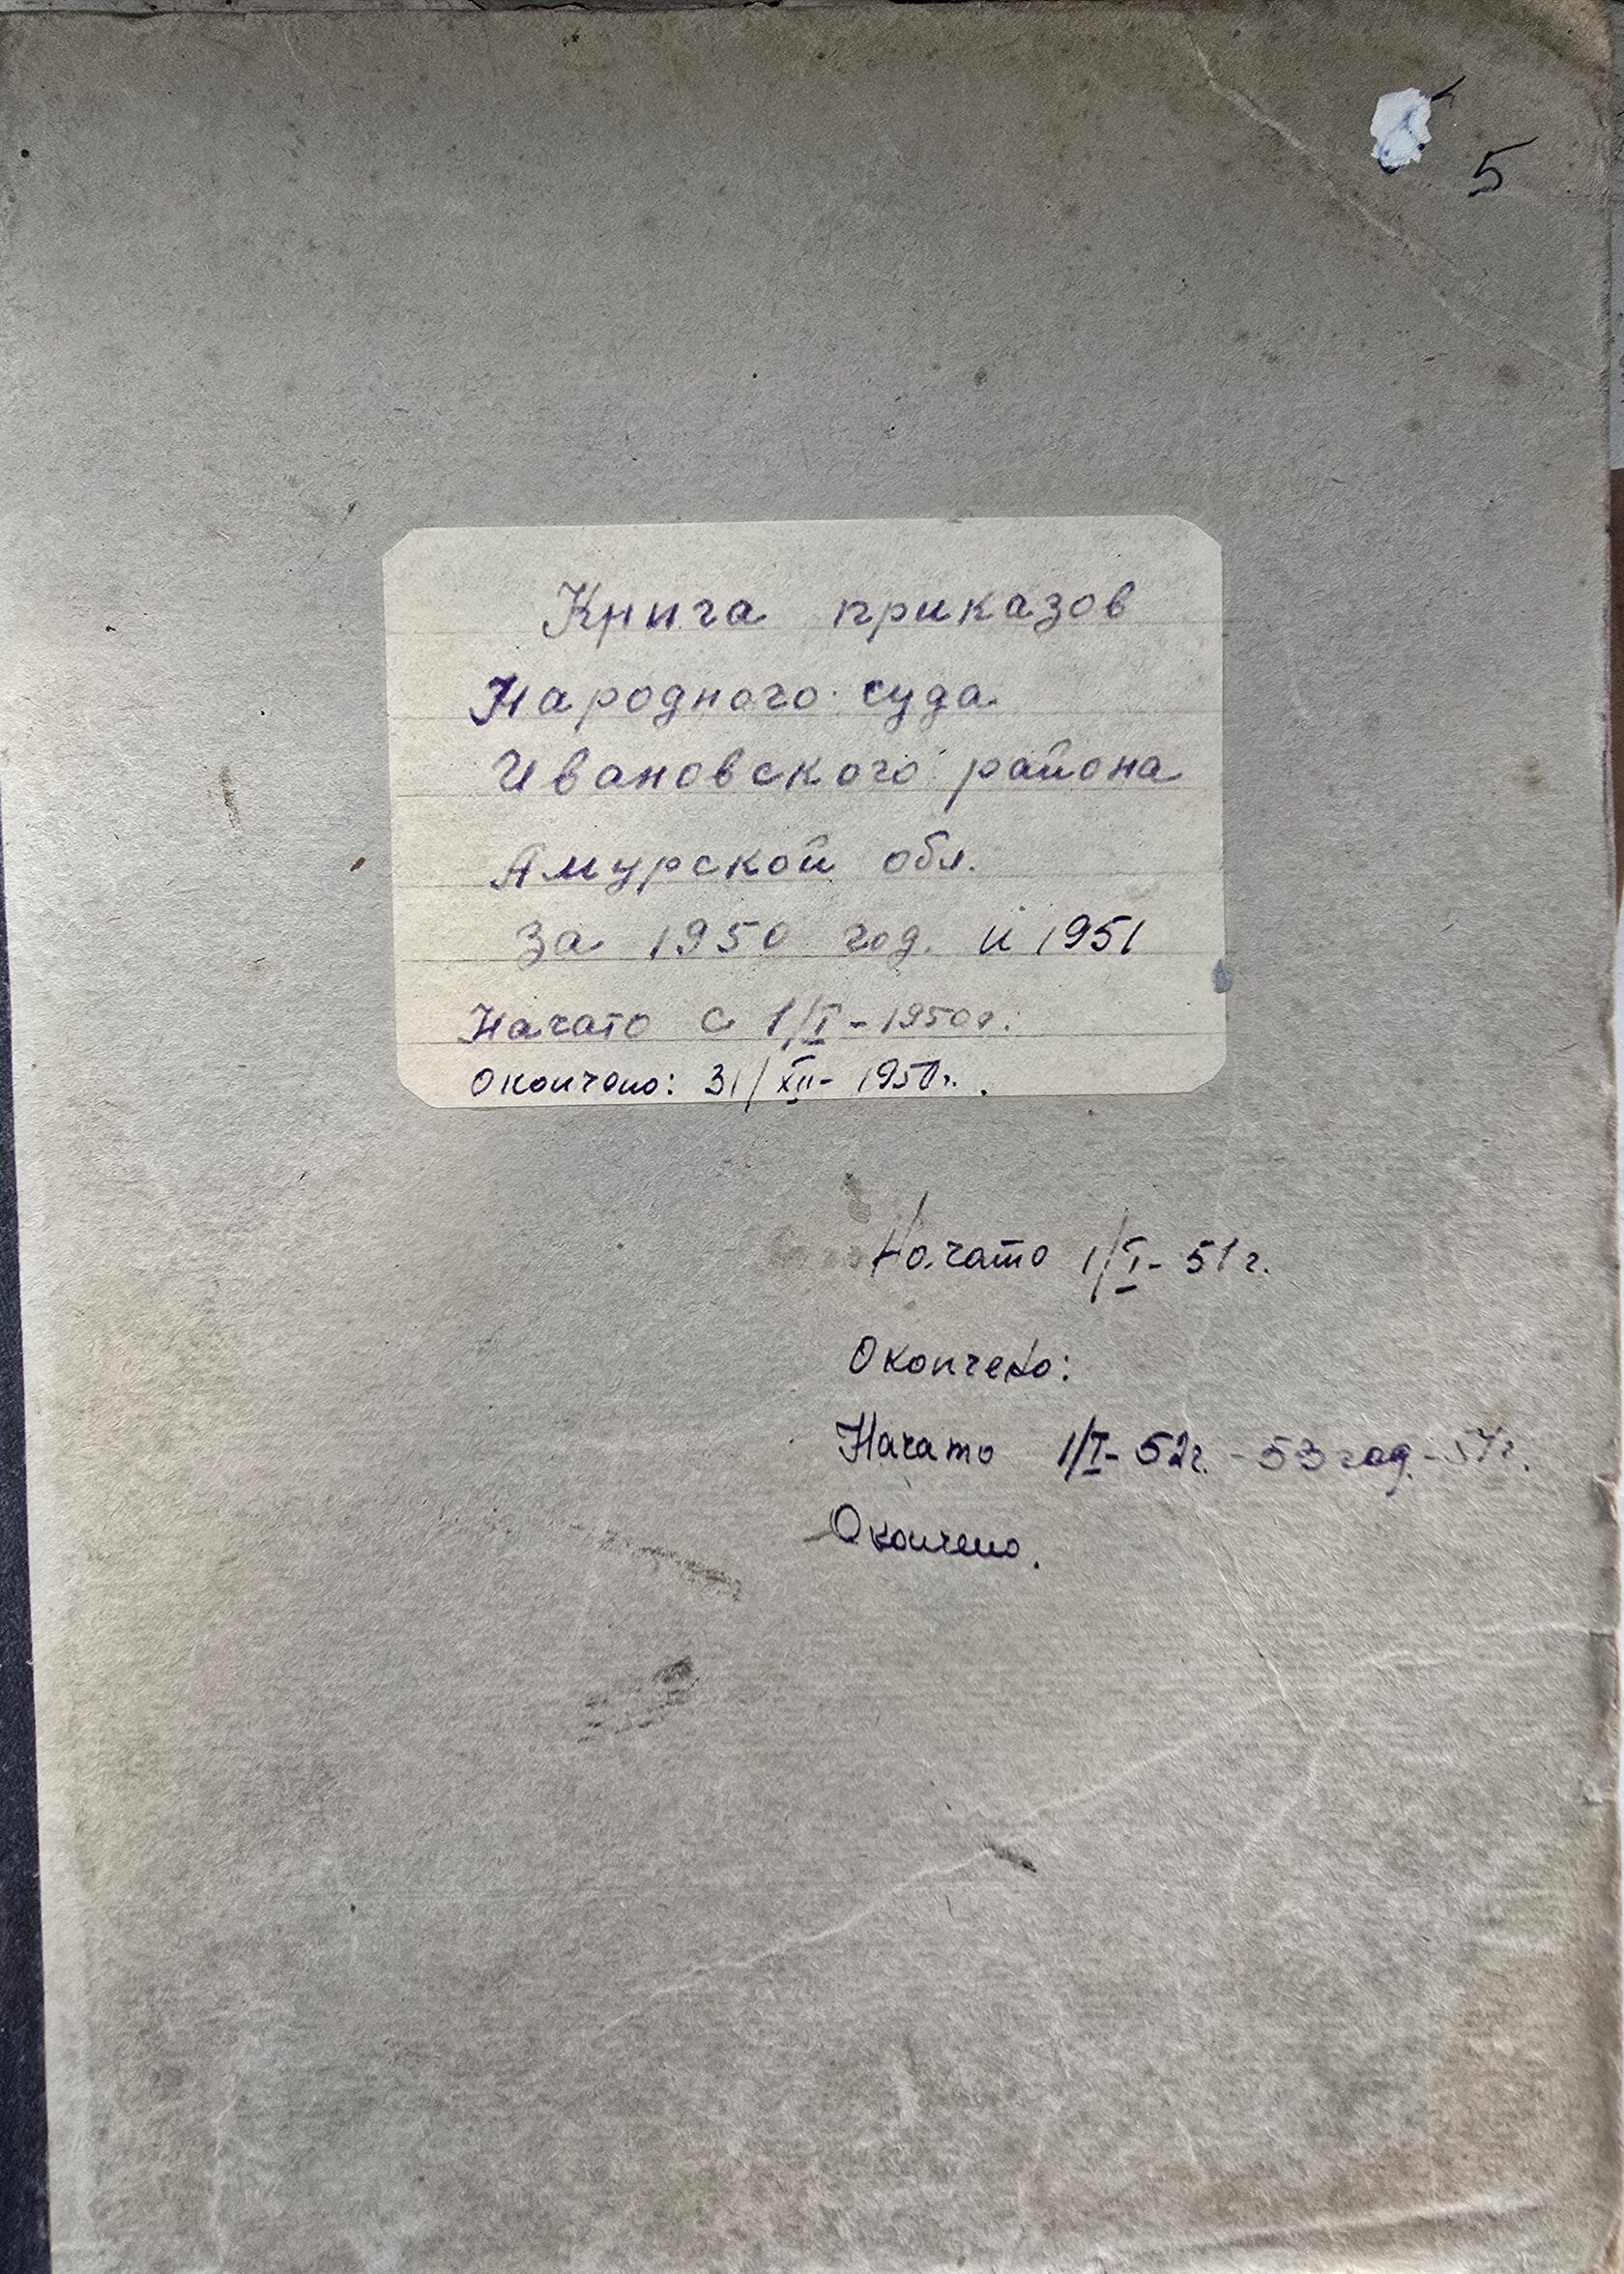 5
Книга приказов
Народного суда
Ивановского района
Амурской обл.
За 1950 год. и 1951
Начато с 1/I - 1950г.
Окончено: 31/XII - 1950г.
Начато 1/I - 51г.
Окончено:
Начато 1/I - 52г. - 53 год. - 54г.
Окончено.